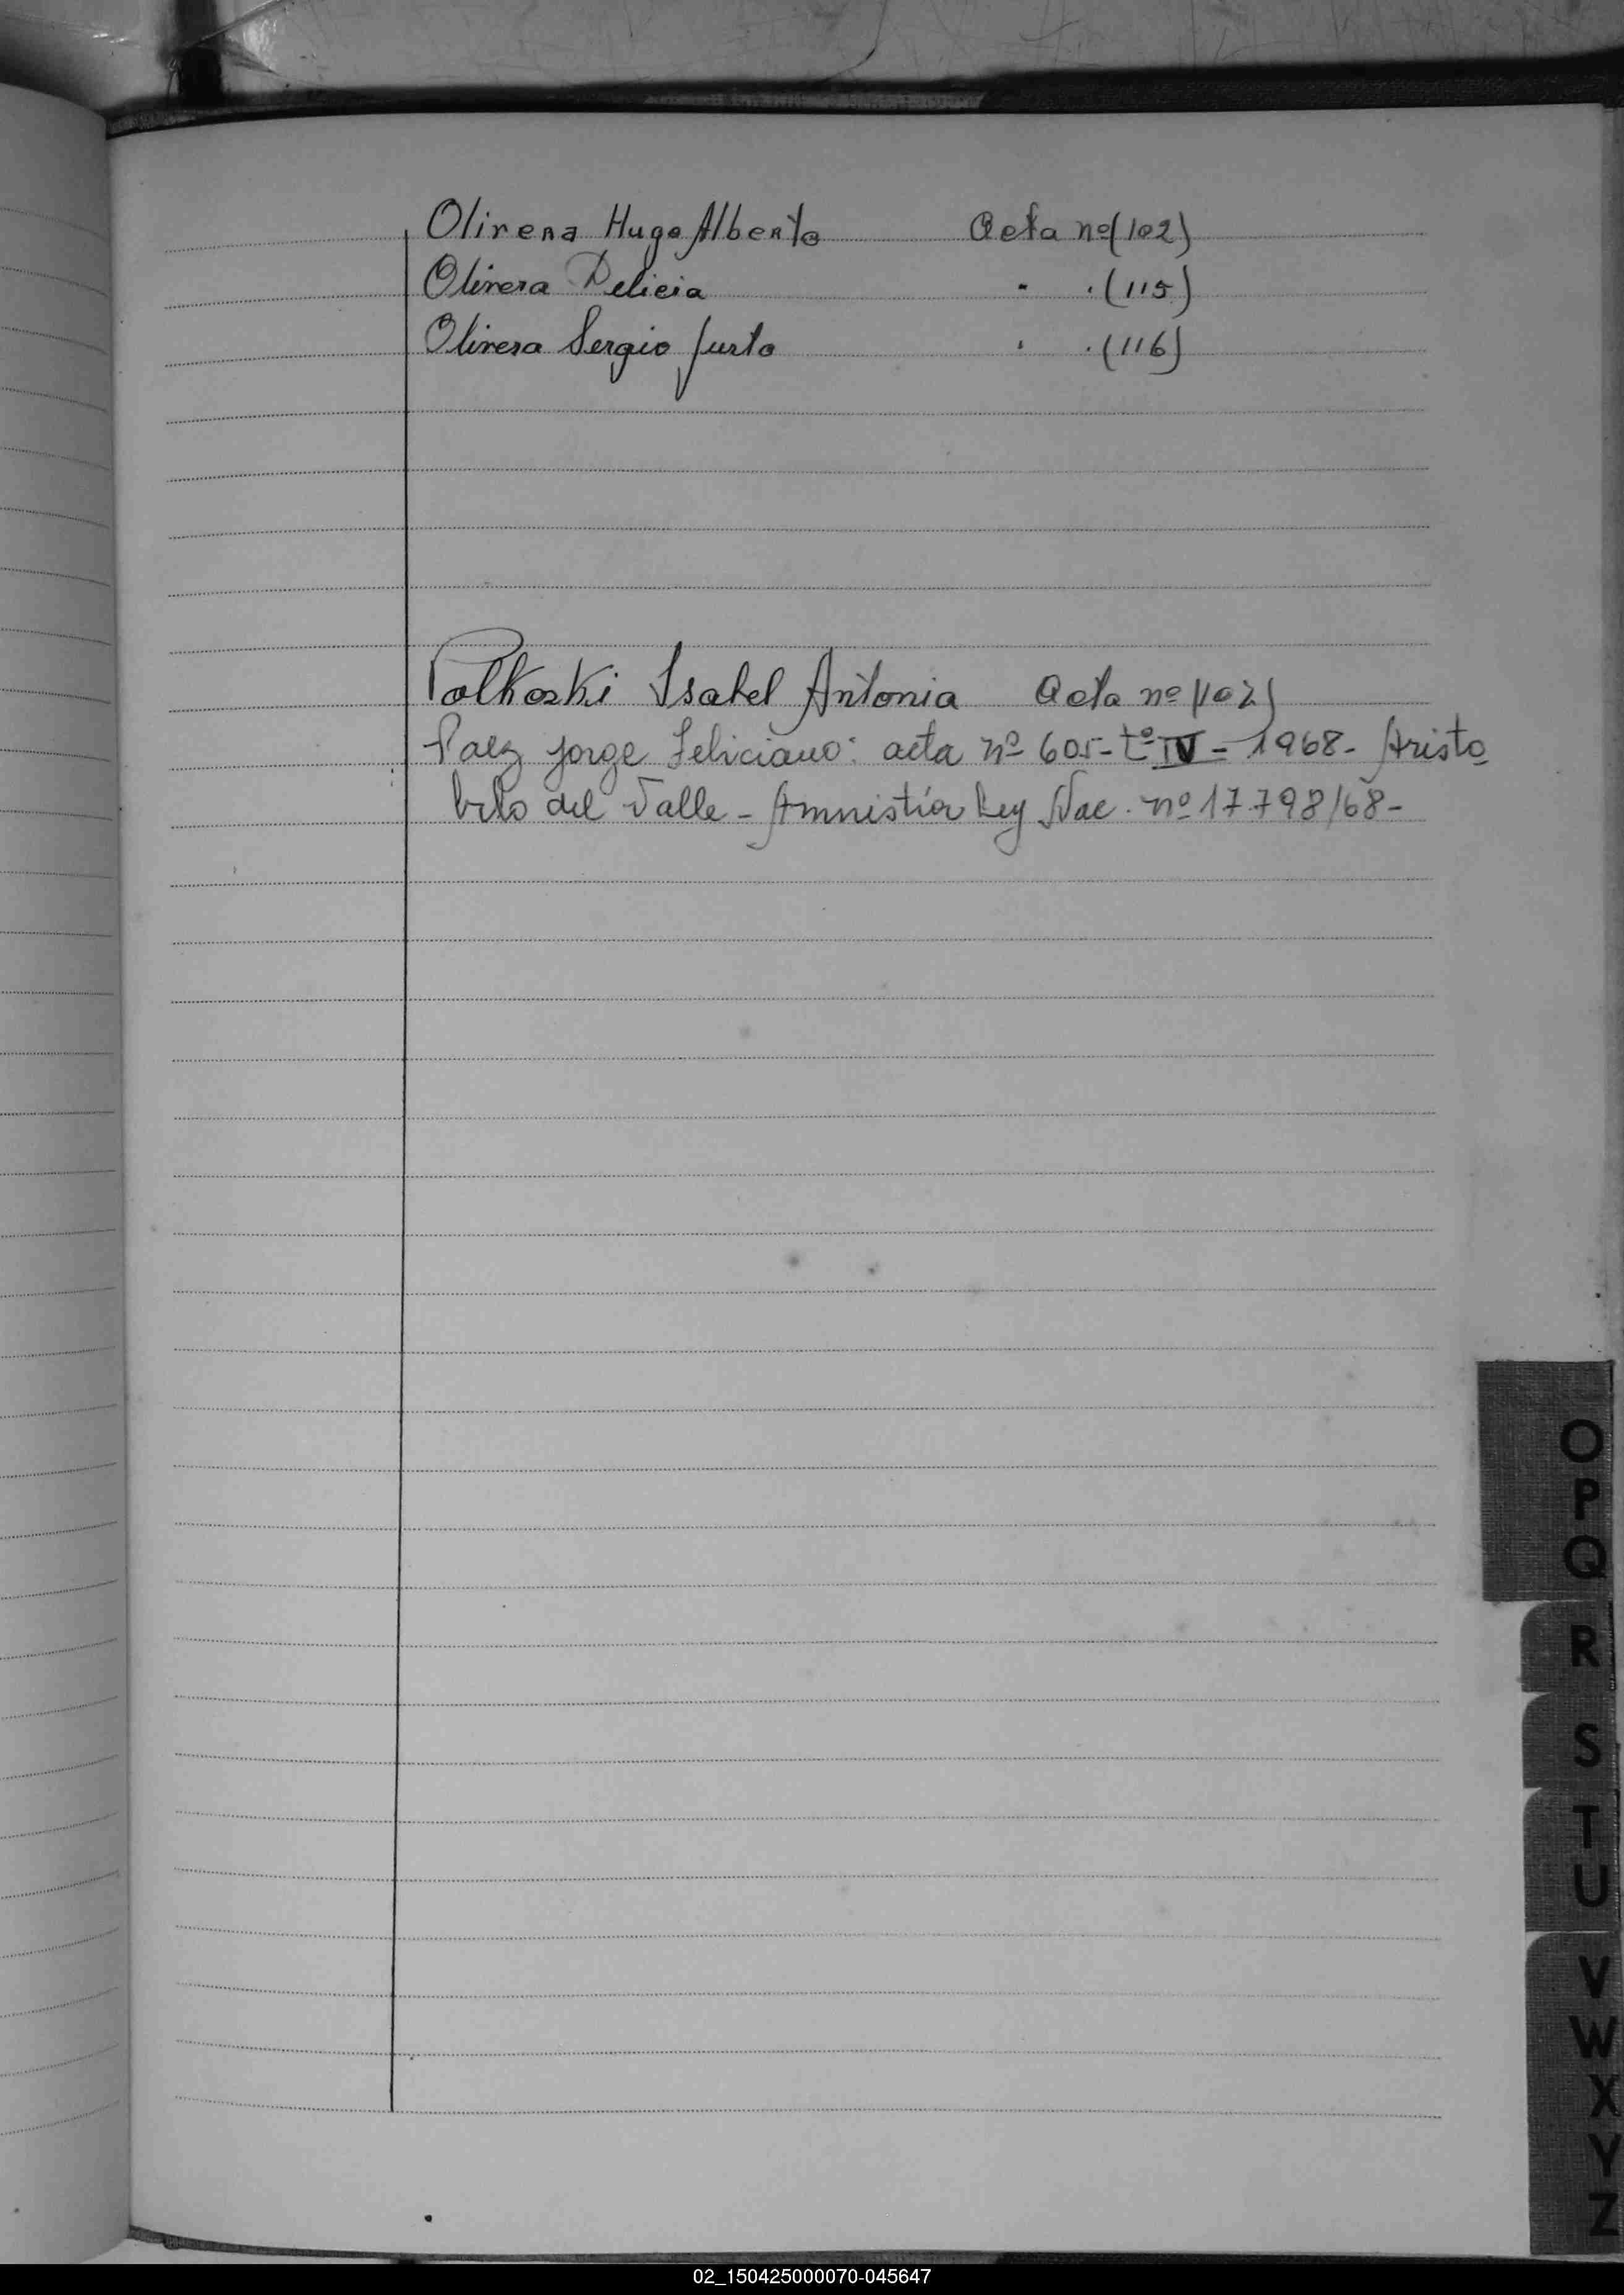 Olivera Hugo Alberto Acta nº (102)
Olivera Delicia " " (115)
Olivera Sergio Justo " " (116)
Isabel Antonia Acta nº (102)
Paez Jorge Feliciano: acta nº 605 - tº IV - 1968 - Aristo
bulo del Valle - Amnistía Ley Nac. nº 17.798/68 -
O
P
Q
R
S
T
U
V
W
X
Y
Z
02_150425000070-045647